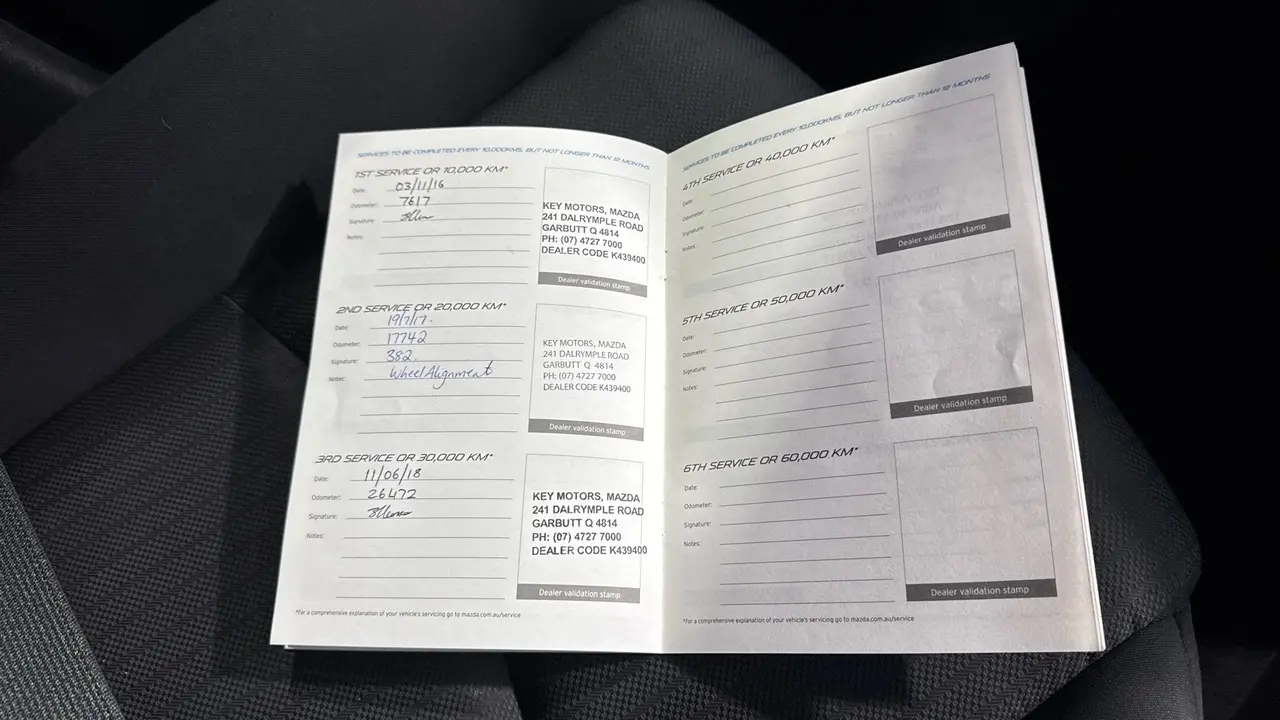 SERVICES: TO BE COMPLETED EVERY 10,000KMS, BUT NOT LONGER THAN 12 MONTHS
1ST SERVICE OR 10,000 KM*
Date: 03/11/16
Odometer: 7617
Signature:
Notes:
KEY MOTORS, MAZDA
241 DALRYMPLE ROAD
GARBUTT Q 4814
PH: (07) 4727 7000
DEALER CODE K439400
Dealer validation stamp
2ND SERVICE OR 20,000 KM*
Date: 19/7/17.
Odometer: 17742
Signature: 382.
Notes: Wheel Alignment
KEY MOTORS, MAZDA
241 DALRYMPLE ROAD
GARBUTT Q 4814
PH: (07) 4727 7000
DEALER CODE K439400
Dealer validation stamp
3RD SERVICE OR 30,000 KM*
Date: 11/06/18
Odometer: 26472
Signature:
Notes:
KEY MOTORS, MAZDA
241 DALRYMPLE ROAD
GARBUTT Q 4814
PH: (07) 4727 7000
DEALER CODE K439400
Dealer validation stamp
*For a comprehensive explanation of your vehicle's servicing go to mazda.com.au/service
SERVICES: TO BE COMPLETED EVERY 10,000KMS, BUT NOT LONGER THAN 12 MONTHS
4TH SERVICE OR 40,000 KM*
Date:
Odometer:
Signature:
Notes:
Dealer validation stamp
5TH SERVICE OR 50,000 KM*
Date:
Odometer:
Signature:
Notes:
Dealer validation stamp
6TH SERVICE OR 60,000 KM*
Date:
Odometer:
Signature:
Notes:
Dealer validation stamp
*For a comprehensive explanation of your vehicle's servicing go to mazda.com.au/service